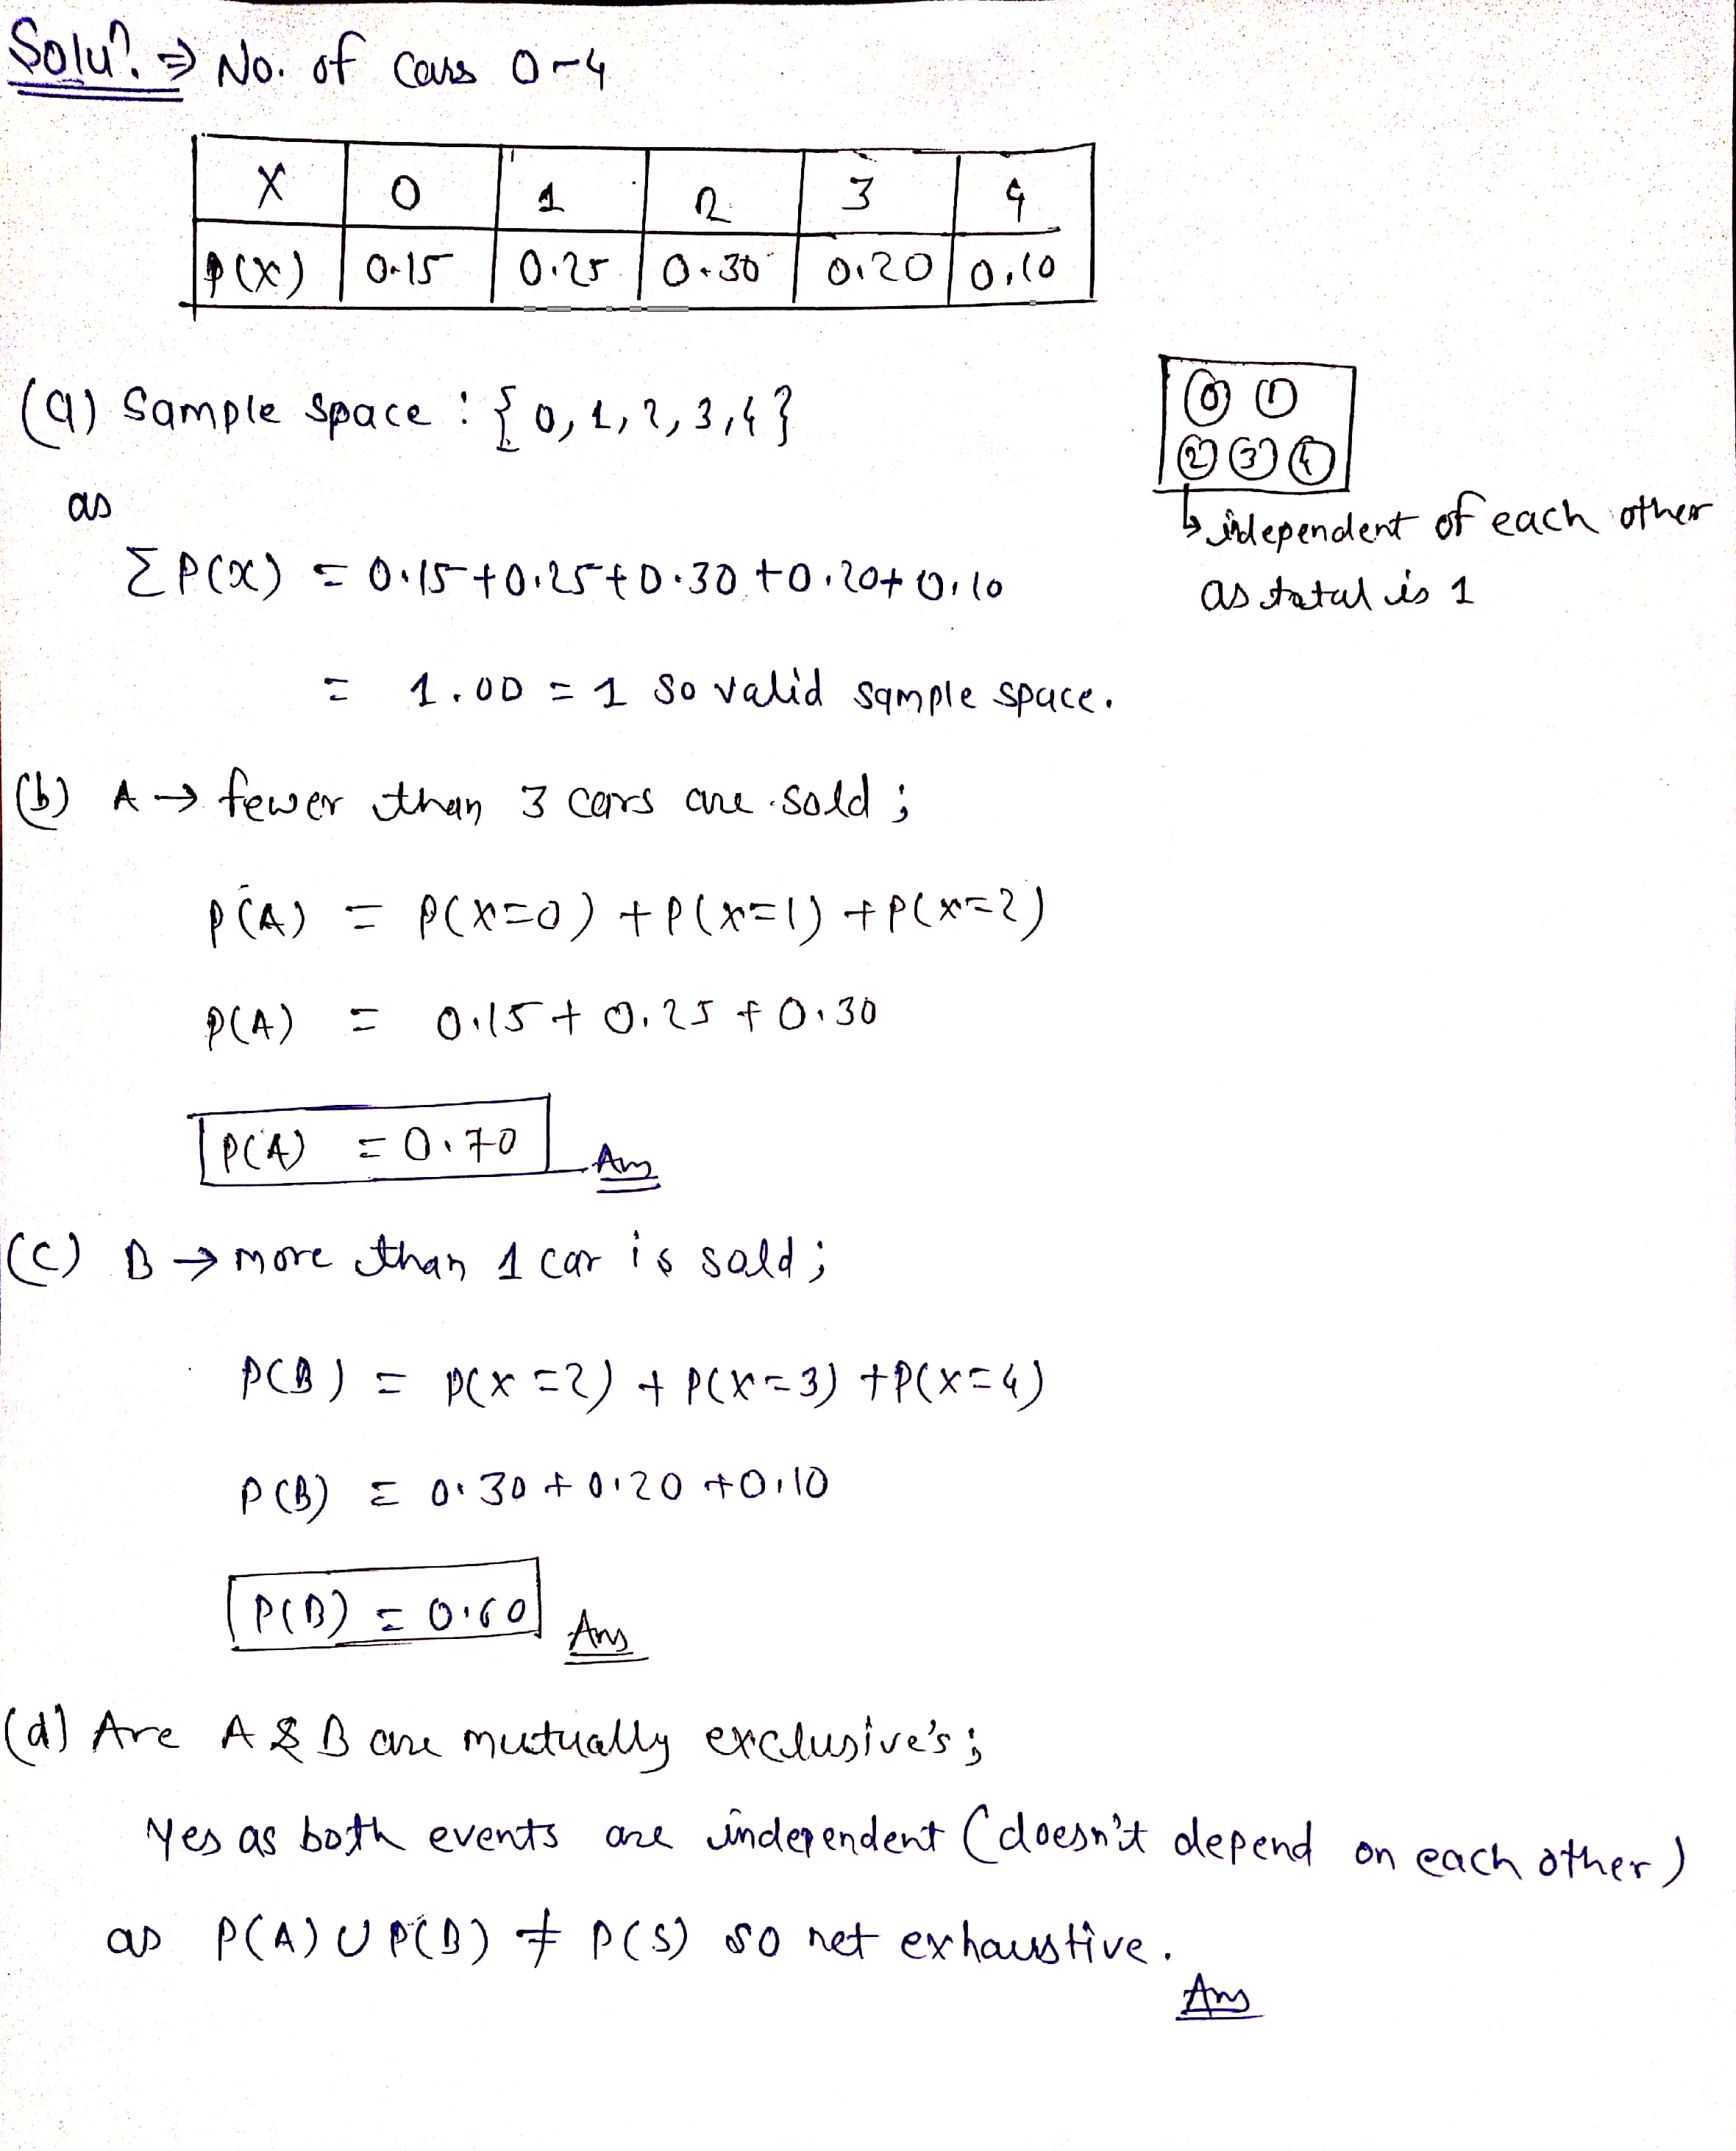 Solun. ⇒ No. of Cars 0-4
X 0 1 2 3 4
P(X) 0.15 0.25 0.30 0.20 0.10
(a) Sample space : {0, 1, 2, 3, 4}
0 1
2 3 4
↳ independent of each other
as total is 1
as
ΣP(x) = 0.15+0.25+0.30+0.20+0.10
= 1.00 = 1 so valid sample space.
(b) A → fewer than 3 cars are sold ;
P(A) = P(X=0) + P(X=1) + P(X=2)
P(A) = 0.15 + 0.25 + 0.30
P(A) = 0.70 Ans
(c) B → more than 1 car is sold ;
P(B) = P(X=2) + P(X=3) + P(X=4)
P(B) = 0.30 + 0.20 + 0.10
P(B) = 0.60 Ans
(d) Are A & B are mutually exclusive's ;
Yes as both events are independent (doesn't depend on each other)
as P(A) ∪ P(B) ≠ P(S) so not exhaustive.
Ans